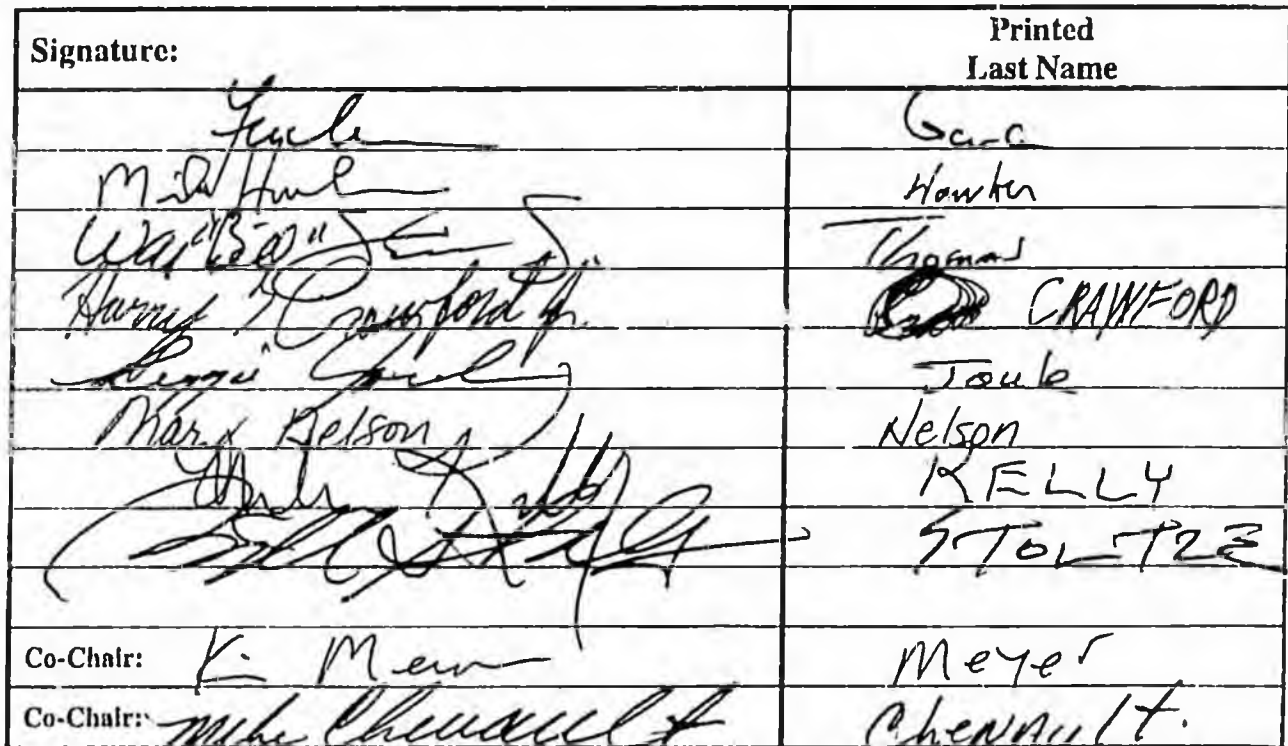 Signature: Printed Last Name
Gara
Mike Hawker
Thomas
Harry Crawford Jr. CRAWFORD
Reggie Joule Joule
Mary Nelson Nelson
Mike Kelly KELLY
STOLTZE
Co-Chair: K. Meyer Meyer
Co-Chair: Mike Chenault Chenault.